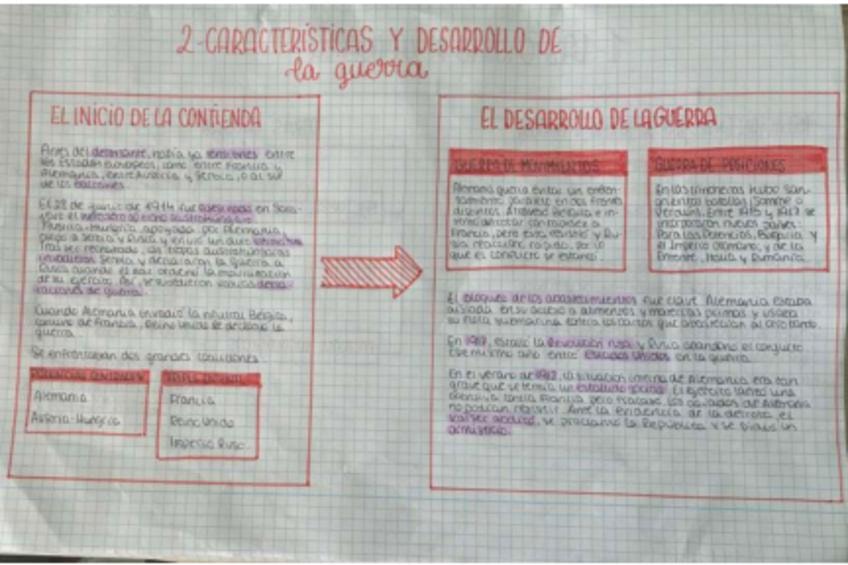 2-CARACTERÍSTICAS Y DESARROLLO DE
la guerra
EL INICIO DE LA CONTIENDA
Antes del detonante, había ya tensiones entre
los Estados europeos, como entre Francia y
Alemania, entre Austria y Serbia, o al sur
de los Balcanes.
El 28 de junio de 1914 fue asesinado en
el heredero al trono austrohúngaro
Austria-Hungría, apoyada por Alemania,
culpó a Serbia y Rusia y envió un duro ultimátum
Tras ser rechazado, las tropas austrohúngaras
invadieron Serbia y declararon la guerra a
Rusia cuando el zar ordenó la movilización
de su ejército. Así, se sucedieron varias decla
raciones de guerra.
Cuando Alemania invadió la neutral Bélgica,
camino de Francia, Reino Unido se declaró la
guerra.
Se enfrontaban dos grandes coaliciones
POTENCIAS CENTRALES
Alemania
Austria-Hungría
TRIPLE ENTENTE
Francia
Reino Unido
Imperio Ruso
EL DESARROLLO DE LA GUERRA
GUERRA DE MOVIMIENTOS
Alemania quería evitar un enfren-
tamiento paralelo en dos frentes
distintos. Atravesó Bélgica e in-
tentó derrotar con rapidez a
Francia, pero esta resistió y Ru-
sia reaccionó rápido, por lo
que el conflicto se estancó.
GUERRA DE POSICIONES
En las trincheras hubo san-
grientas batallas (Somme o
Verdún). Entre 1915 y 1917 se
incorporaron nuevos países:
Para las Potencias, Bulgaria y
el Imperio otomano; y de la
Entente, Italia y Rumanía.
El bloqueo de los abastecimientos fue clave. Alemania estaba
aislada en su acceso a alimentos y materias primas y usaba
su flota submarina contra los barcos que abastecían al otro bando.
En 1917, estalló la Revolución rusa y Rusia abandonó el conflicto
Ese mismo año entró Estados Unidos en la guerra.
En el verano de la situación interna de Alemania era tan
grave que se temía un estallido social. El ejército lanzó una
ofensiva contra Francia pero fracasó. Los aliados de Alemania
no podían resistir. Ante la evidencia de la derrota, el
káiser abdicó, se proclamó la República y se pidió un
armisticio.